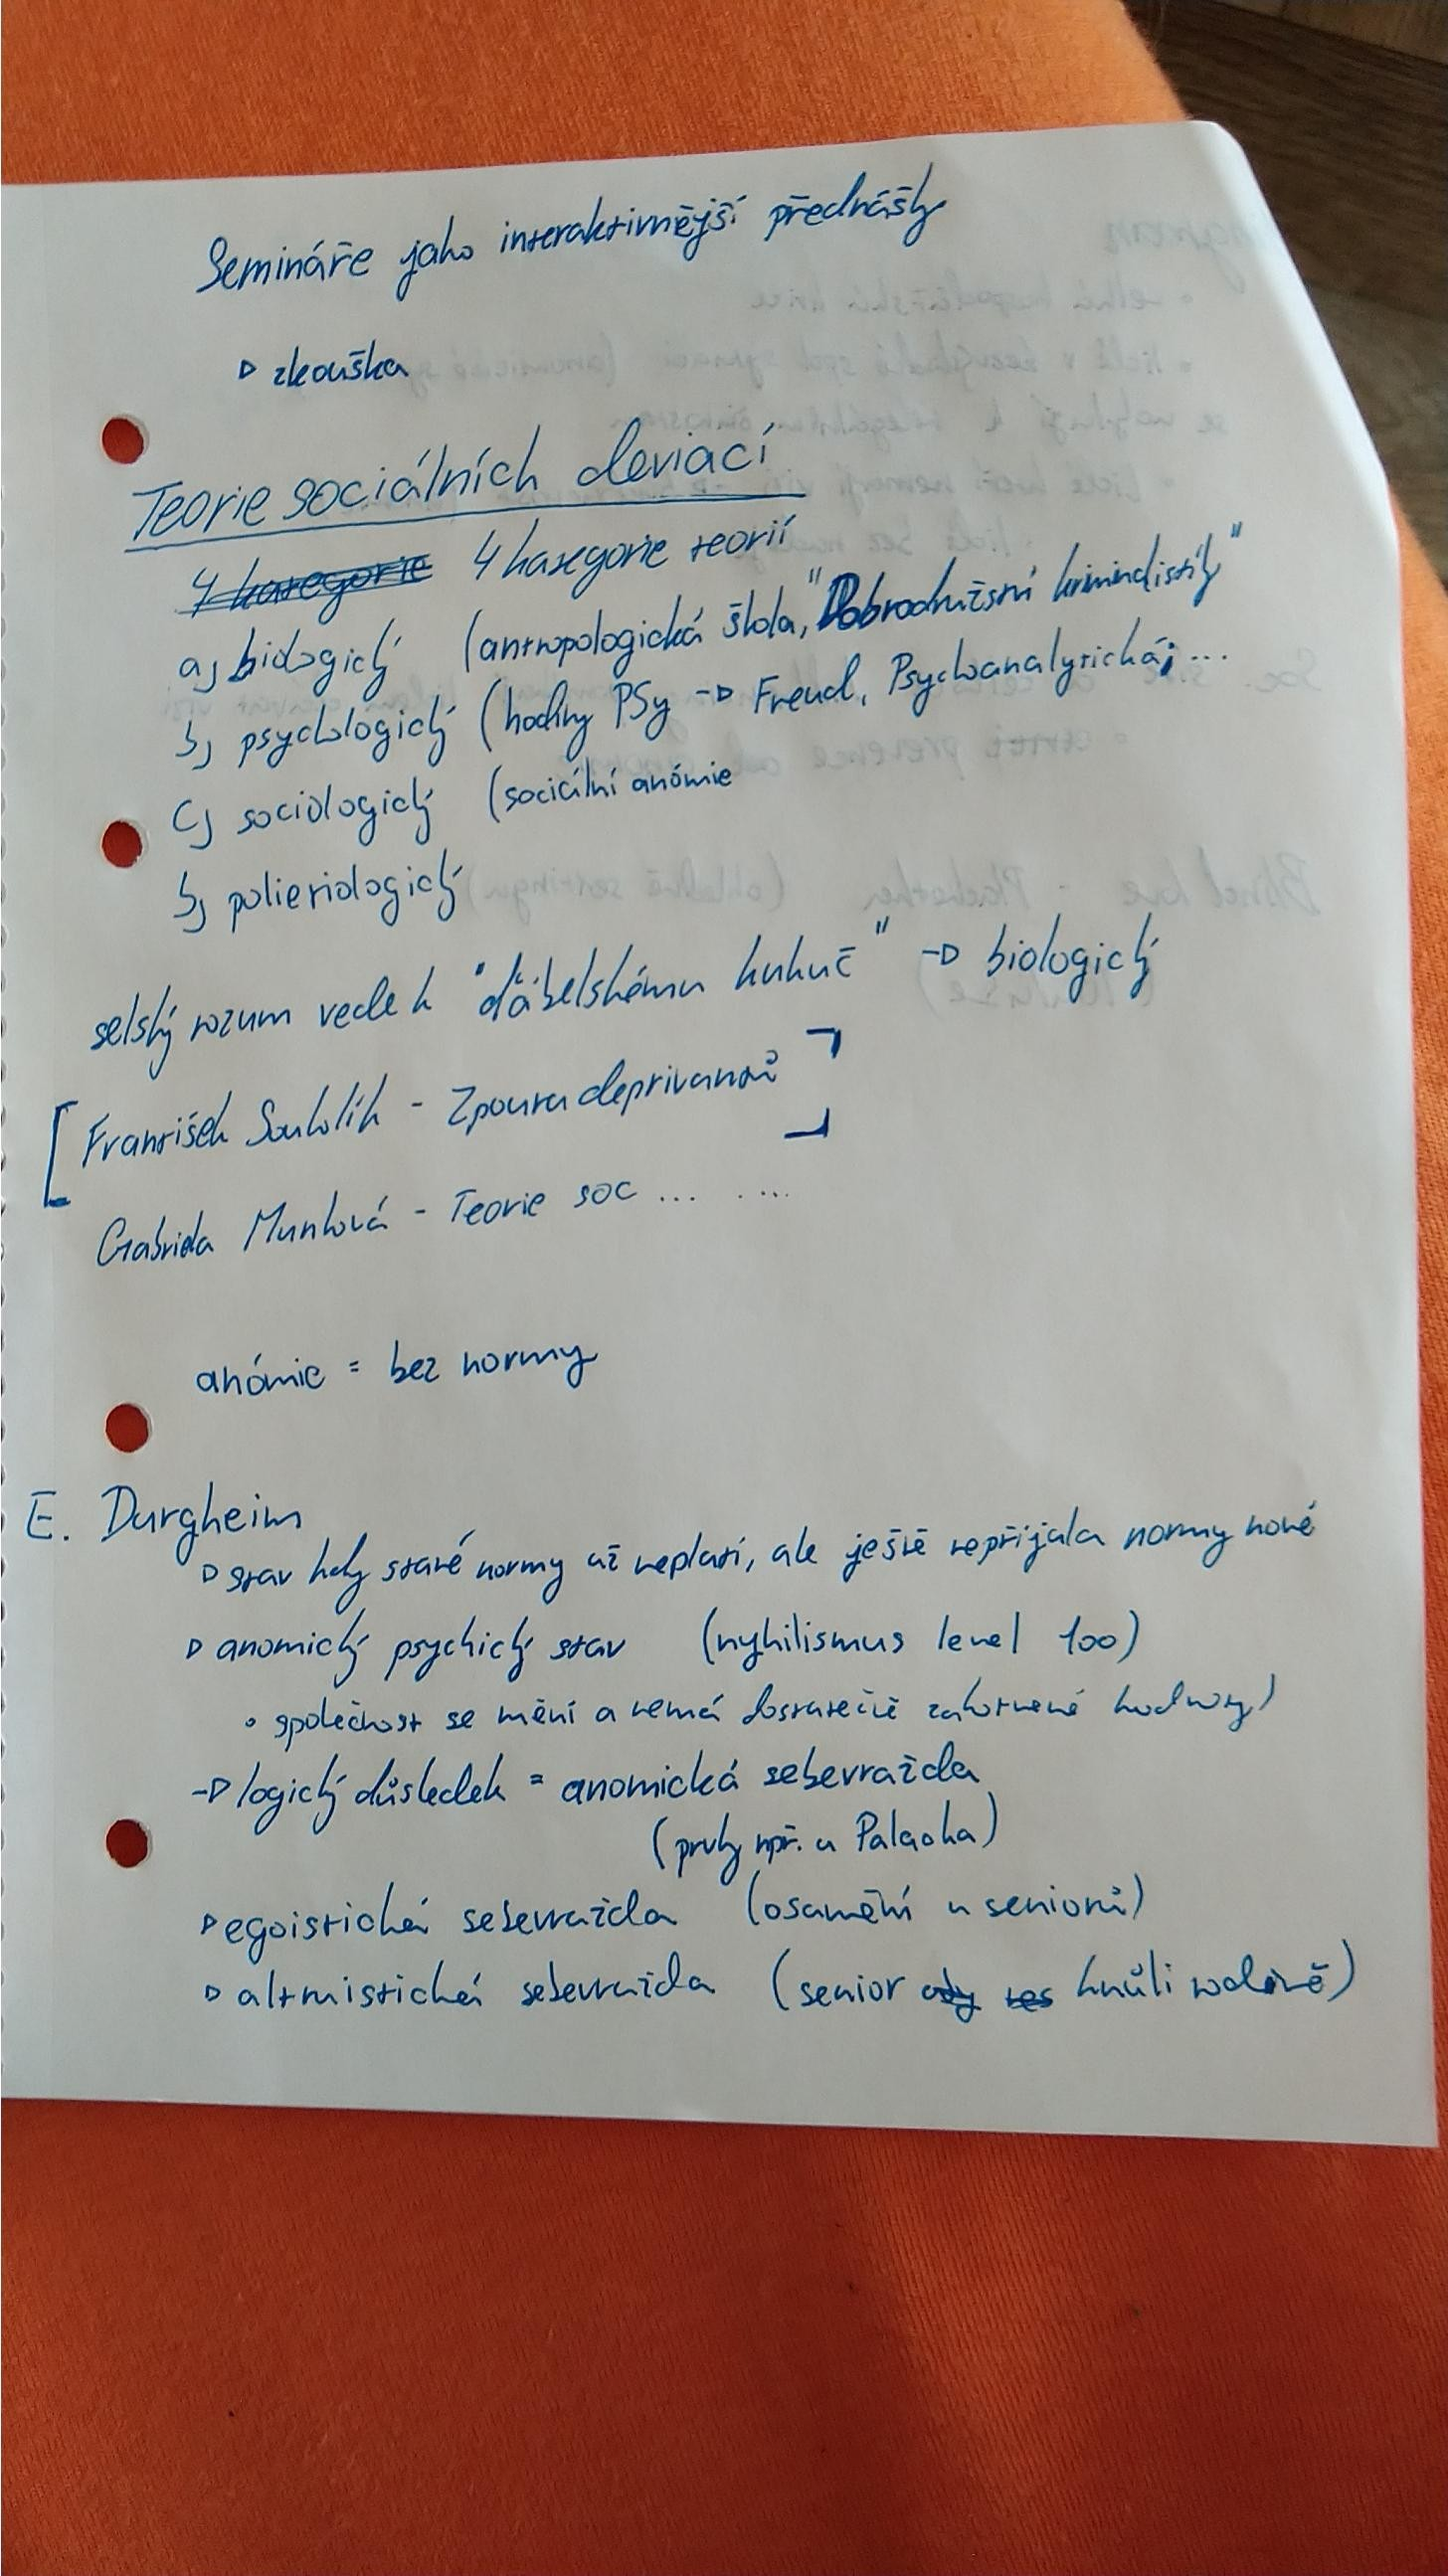 Semináře jako interaktivnější přednášky
▷ zkouška
Teorie sociálních deviací
4 kategorie 4 kategorie teorií
a) biologický (antropologická škola, "Dobrodružství kriminalistiky"
b) psychologický (hodiny PSy -▷ Freud, Psychoanalytická; ...
c) sociologický (sociální anómie
b) polieriologický
selský rozum vede k "ďábelskému kukuč" -▷ biologický
[František Koukolík - Vzpoura deprivantů]
Gabriela Munková - Teorie soc ... ....
anómie = bez normy
E. Durgheim
▷ stav kdy staré normy už neplatí, ale ještě nepřijala normy nové
▷ anomický psychický stav (nyhilismus level 100)
• společnost se mění a nemá dostatečně zakotvené hodnoty)
-▷ logický důsledek = anomická sebevražda
(prvky např. u Palacha)
▷ egoistická sebevražda (osamění u seniorů)
▷ altruistická sebevražda (senior kvůli rodině)